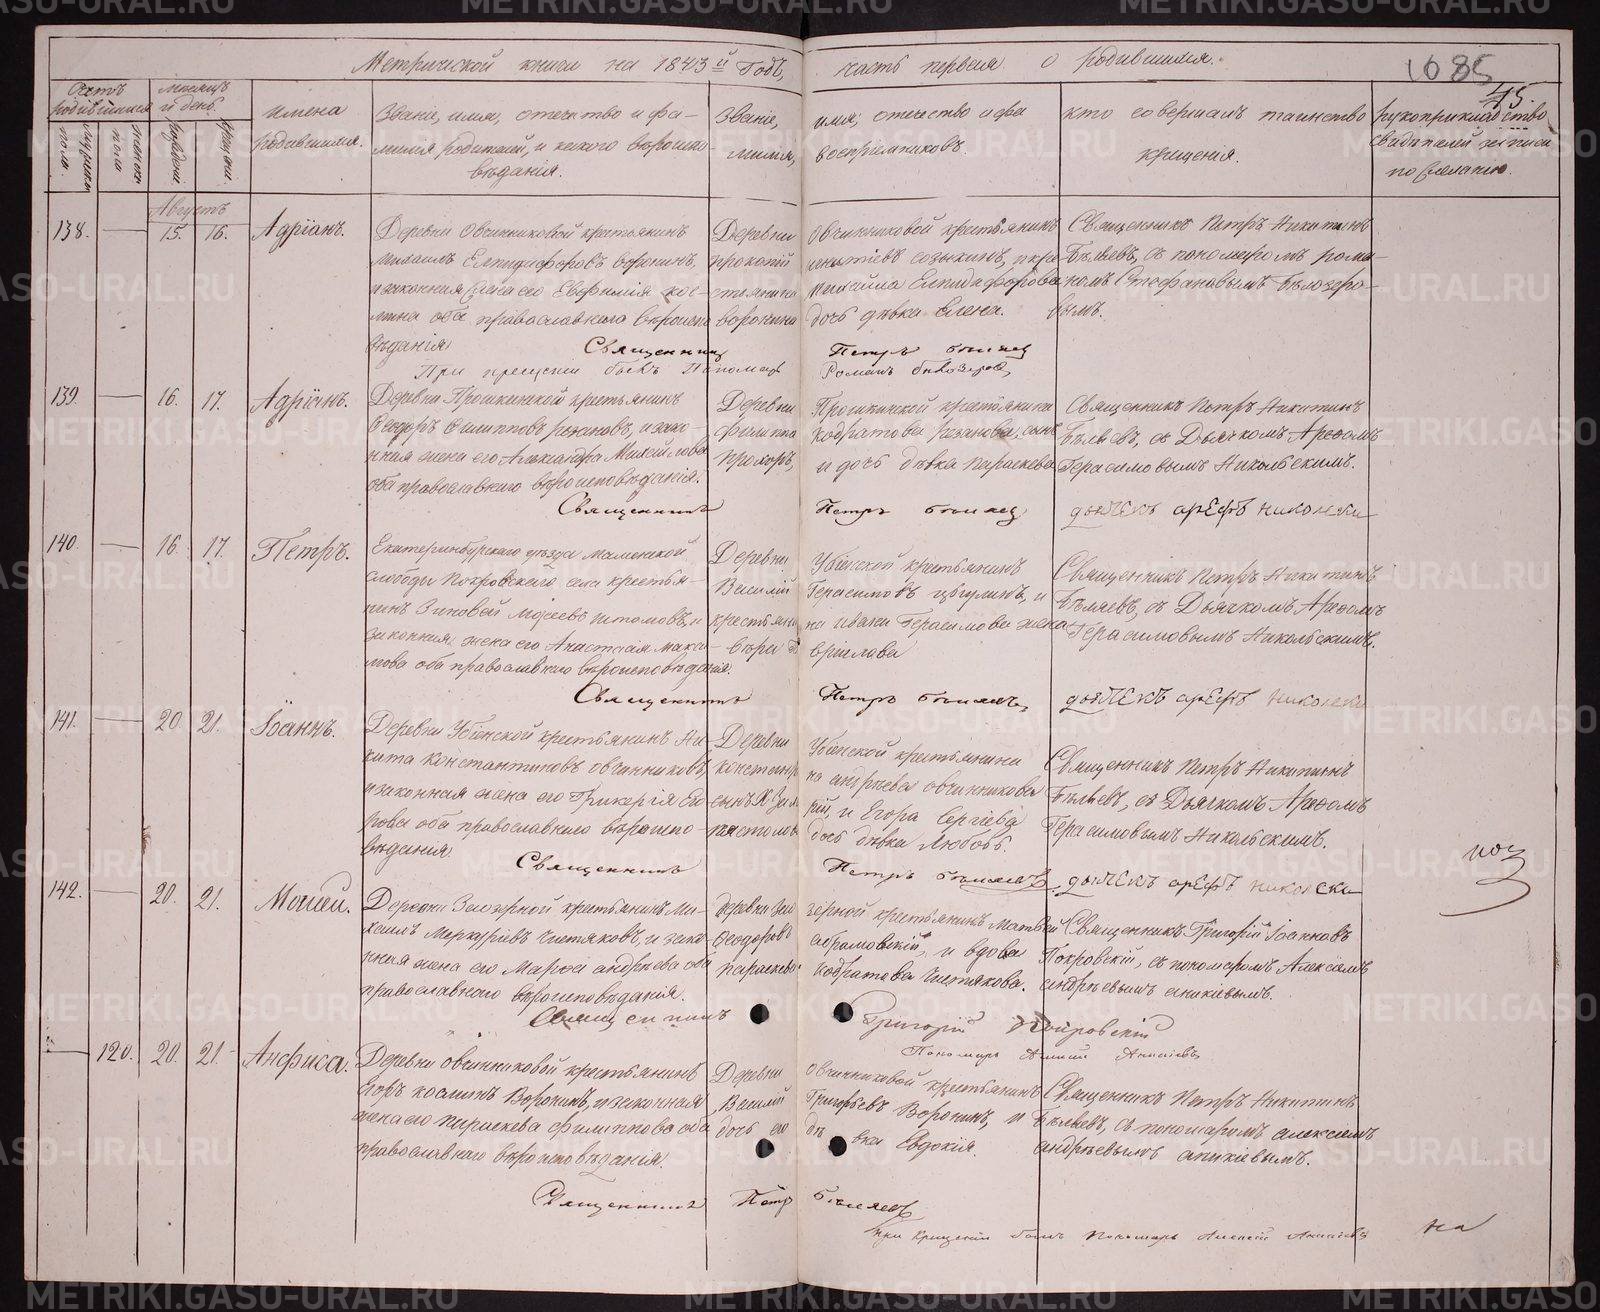 Метрической книги на 1843й Годъ, часть первая о родившихся.
1085
45.
Счетъ родившихся
Мужеска пола.
Женска пола
Месяцъ и день.
рожденiе.
крещенiе.
имена родившихся.
Званiе, имя, отечество и фа-
милiя родителей, и какого вѣроиспо-
вѣданiя.
Званiе, имя, отечество и фа
милiя, воспрiемниковъ.
кто совершалъ таинство
крещенiя.
рукоприкладство
свидѣтелей записи
по желанiю.
Августъ
138. 15. 16. Адрiанъ.
Деревни Овчинниковой крестьянинъ
Михаилъ Елпидифоровъ воронинъ,
и законная жена его Евфимiя Кос-
мина оба православнаго вѣроиспо
вѣданiя
Деревни Овчинниковой крестьянинъ
прокопiй созыкинъ, и кре
стьянина Михаила Елпидифорова
воронина дочь дѣвка Елена.
Священникъ Петръ Никитинъ
Бѣляевъ, съ пономаремъ рома-
номъ Стефановымъ Бѣлозеро-
вымъ.
Священникъ Петръ Бѣляев
При крещенiи былъ Пономарь Романъ Бѣлозеров
139. 16. 17. Адрiанъ.
Деревни Прошкинской крестьянинъ
Ѳеодоръ Филипповъ рязановъ, и зако-
нная жена его Александра Михайлова
оба православнаго вѣроисповѣданiя.
Деревни Прошкинской крестьянина
филиппа кодратова рязанова, сынъ
Прохоръ, и дочь дѣвка Параскева
Священникъ Петръ Никитинъ
Бѣляевъ, съ Дьячкомъ Арефомъ
Герасимовымъ Никольскимъ.
Священникъ Петръ Бѣляев дьячекъ арефъ николски
140. 16. 17. Петръ.
Екатеринбургскаго уѣзда Маминской
слободы Покровскаго села крестья-
нинъ Зиновей Мојсеевъ
законная жена его Анастасiя Макси-
мова оба православнаго вѣроисповѣданiя.
Деревни Убiенской крестьянинъ
Василiй Герасимовъ и
крестьяни на ивана Герасимова жена
вѣра
Священникъ Петръ Никитинъ
Бѣляевъ, съ Дьячкомъ Арефомъ
Герасимовымъ Никольскимъ.
Священникъ Петръ Бѣляевъ дьячекъ арефъ николски
141. 20. 21. Iоаннъ.
Деревни Убiенской крестьянинъ Ни-
кита Константиновъ овчинниковъ,
и законная жена его Гликерiя Его
рова оба православнаго вѣроиспо-
вѣданiя.
Деревни Убiенской крестьянина
андрѣева овчинникова
сынъ и Егора Сергiева
дочь дѣвка Любовь.
Священникъ Петръ Никитинъ
Бѣляевъ, съ Дьячкомъ Арефомъ
Герасимовымъ Никольскимъ.
Священникъ Петръ Бѣляевъ дьячекъ арефъ николски
142. 20. 21. Моисей.
Деревни Заозерной крестьянинъ Ми-
хаилъ Меркурiевъ Чистяковъ, и зако-
нная жена его Марѳа андрѣева оба
православнаго вѣроисповѣданiя.
деревни Зао зерной крестьянинъ Матвѣй
Ѳеодоровъ абрамовскiй, и вдова
параскева кодратова Чистякова.
Священникъ Григорiй Iоанновъ
Покровскiй, съ пономаремъ Алексѣемъ
андрѣевымъ аникiевымъ.
Священникъ Григорiй Покровскiй
Пономарь Алексiй Аникiевъ
120. 20. 21. Анфиса.
Деревни Овчинниковой крестьянинъ
Егоръ косминъ Воронинъ, и законная
жена его параскева филиппова оба
православнаго вѣроисповѣданiя.
Деревни Овчинниковой крестьянинъ
Василiй Григорьевъ Воронинъ, и
дочь его дѣ вка Евдокiя.
Священникъ Петръ Никитинъ
Бѣляевъ, съ пономаремъ алексѣемъ
андрѣевымъ аникiевымъ.
Священникъ Петръ Бѣляевъ
При крещенiи былъ Пономарь Алексiй Аникiевъ
на
METRIKI.GASO-URAL.RU